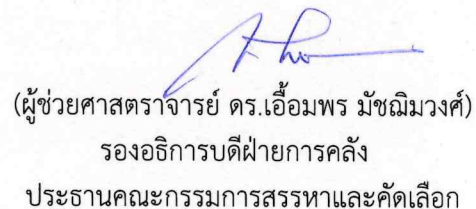 (ผู้ช่วยศาสตราจารย์ ดร.เอื้อมพร มัชฌิมวงศ์)
รองอธิการบดีฝ่ายการคลัง
ประธานคณะกรรมการสรรหาและคัดเลือก